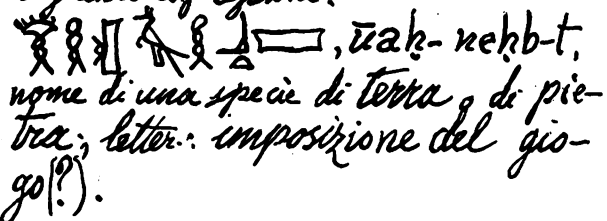 , ūaḥ- neḥb-t,
nome di una specie di terra o di pie-
tra; letter.: imposizione del gio-
go(?).